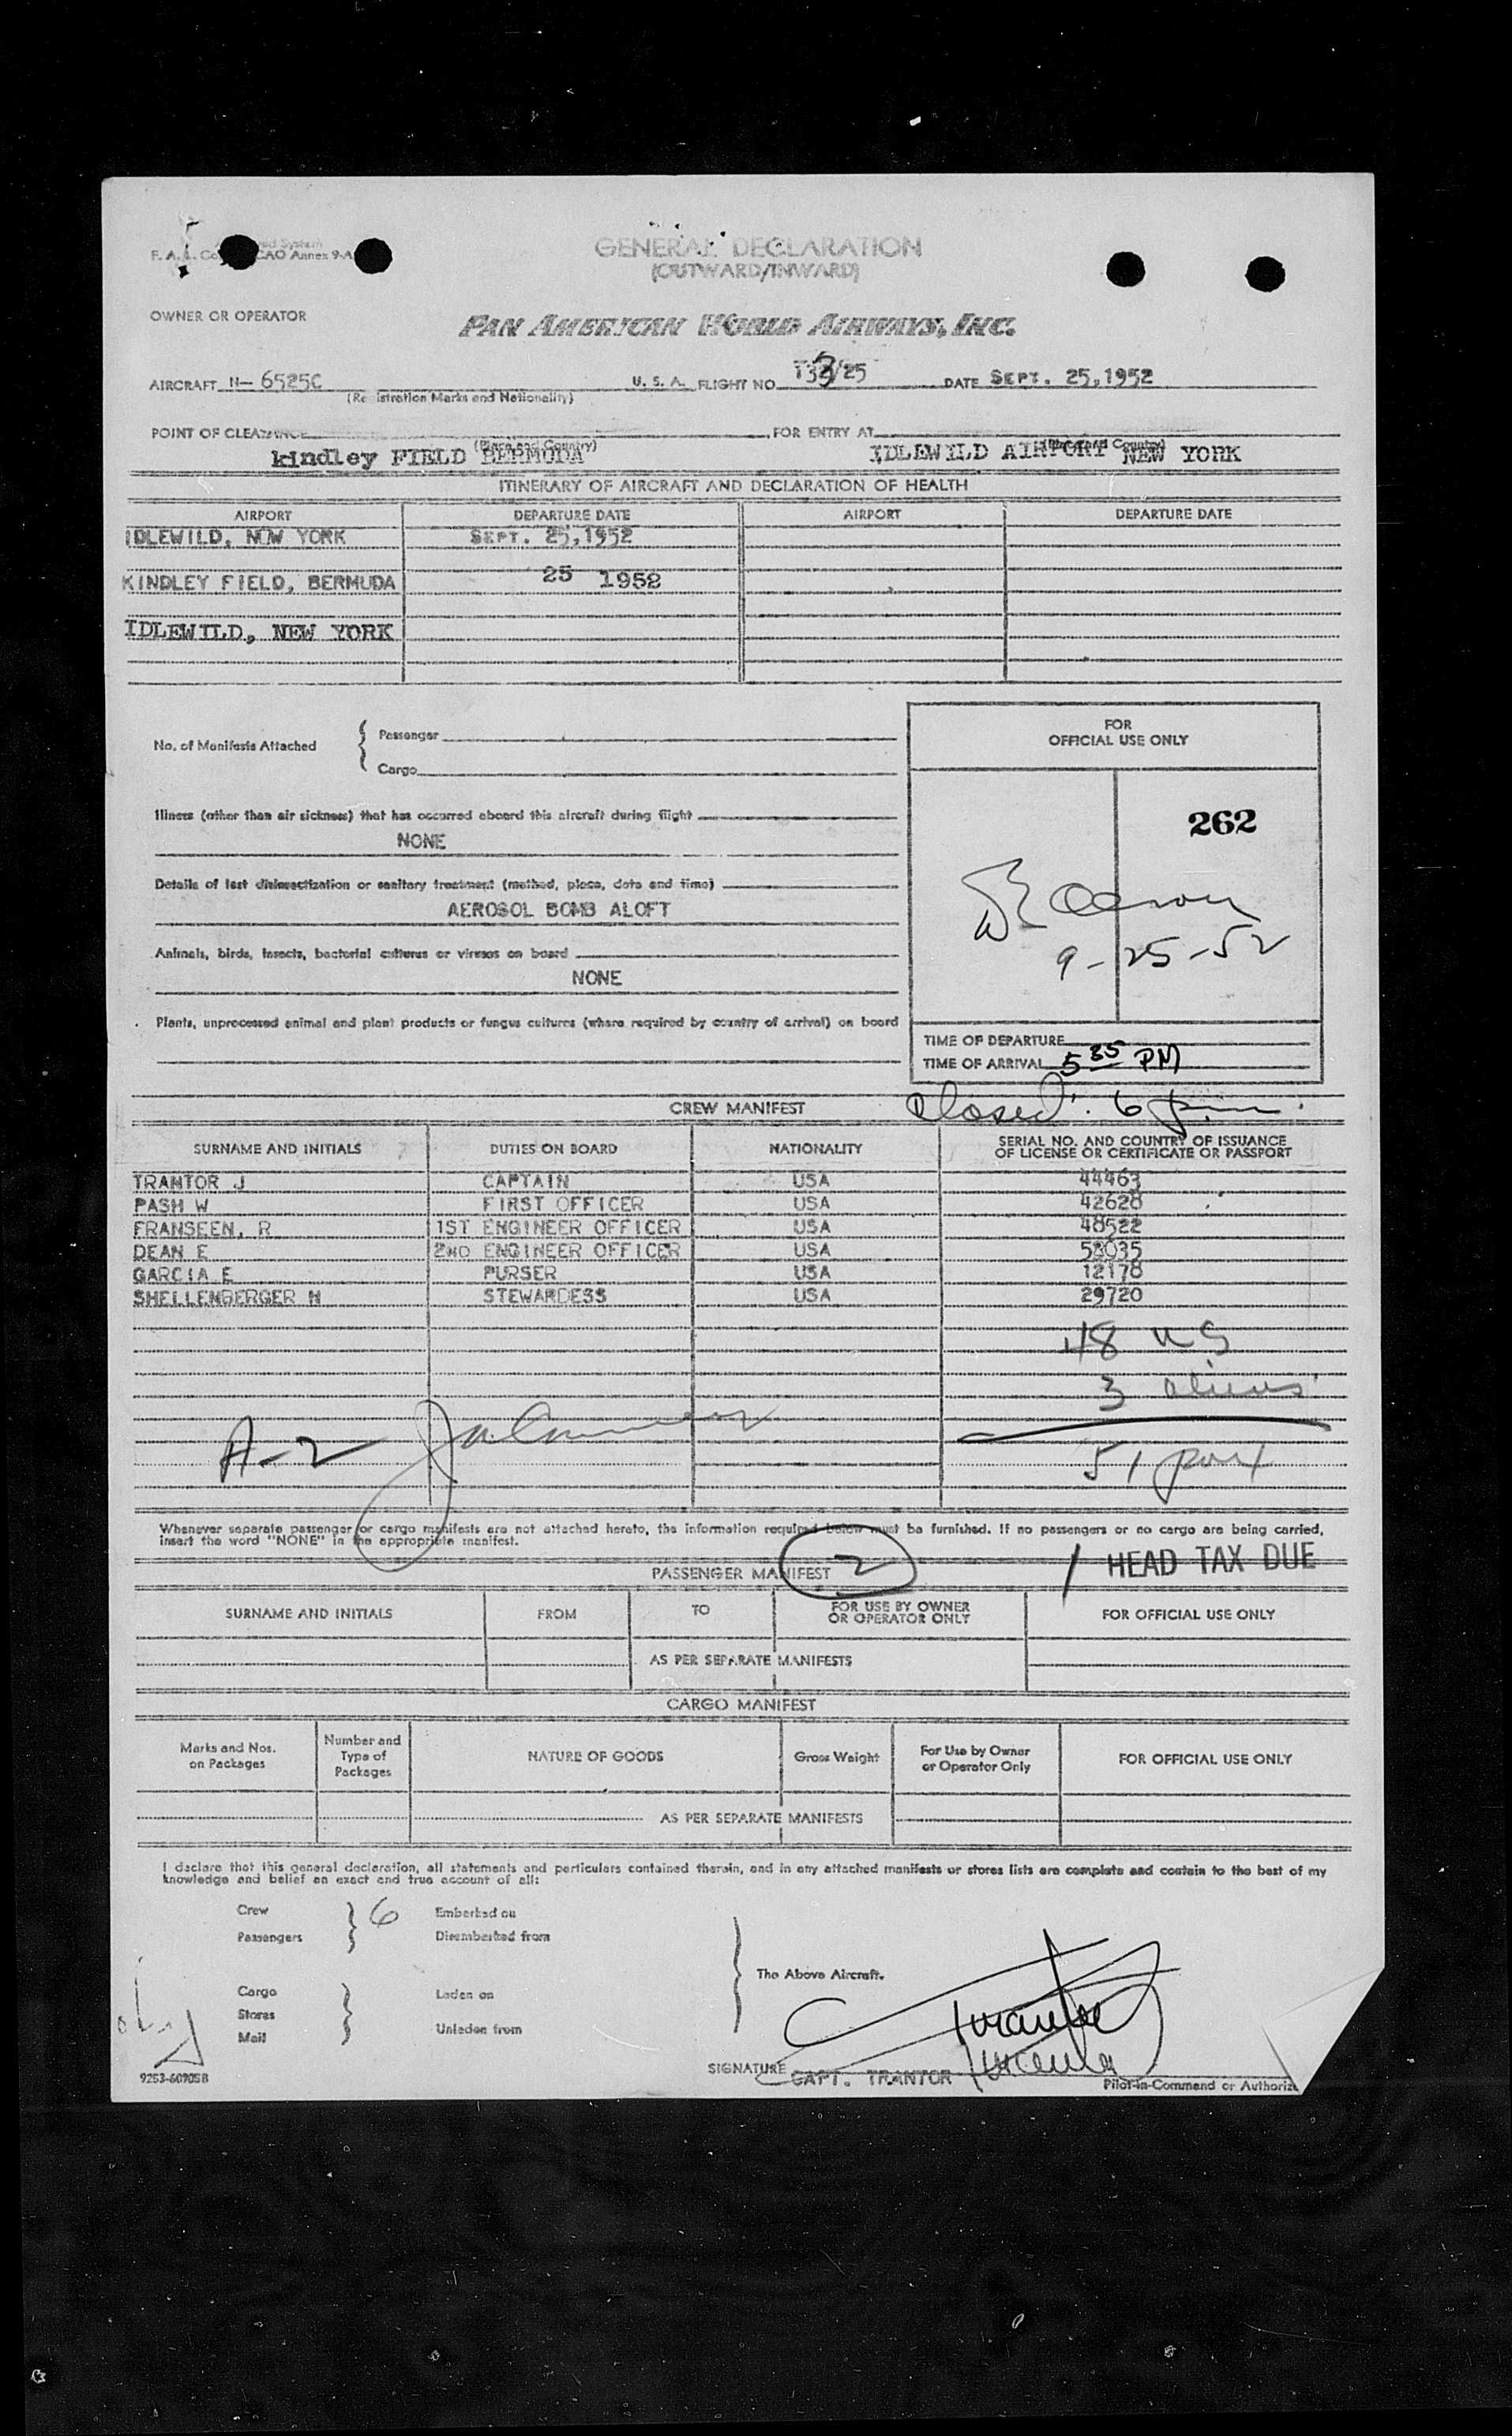 F. A. L. CAO Annex 9-A
GENERAL DECLARATION
(OUTWARD/INWARD)
OWNER OR OPERATOR
PAN AMERICAN WORLD AIRWAYS, INC.
AIRCRAFT N- 6525C U. S. A. FLIGHT NO /25 DATE SEPT. 25,1952
(Registration Marks and Nationality)
POINT OF CLEARANCE FOR ENTRY AT
(Place and Country) (Place and Country)
kindley FIELD BERMUDA IDLEWILD AIRPORT NEW YORK
ITINERARY OF AIRCRAFT AND DECLARATION OF HEALTH
AIRPORT DEPARTURE DATE AIRPORT DEPARTURE DATE
IDLEWILD, NEW YORK SEPT. 25,1952
KINDLEY FIELD, BERMUDA 25 1952
IDLEWILD, NEW YORK
No. of Manifests Attached { Passenger
Cargo
FOR
OFFICIAL USE ONLY
262
9-25-52
Illness (other than air sickness) that has occurred aboard this aircraft during flight
NONE
Details of last disinsectization or sanitary treatment (method, place, date and time)
AEROSOL BOMB ALOFT
Animals, birds, insects, bacterial cultures or viruses on board
NONE
Plants, unprocessed animal and plant products or fungus cultures (where required by country of arrival) on board
TIME OF DEPARTURE
TIME OF ARRIVAL 5 35 PM
Closed: 6 p.m.
CREW MANIFEST
SURNAME AND INITIALS DUTIES ON BOARD NATIONALITY SERIAL NO. AND COUNTRY OF ISSUANCE
OF LICENSE OR CERTIFICATE OR PASSPORT
TRANTOR J CAPTAIN USA 44463
PASH W FIRST OFFICER USA 42628
FRANSEEN, R 1ST ENGINEER OFFICER USA 48522
DEAN E 2ND ENGINEER OFFICER USA
GARCIA E PURSER USA 12178
SHELLENBERGER H STEWARDESS USA 29720
48 US
3 aliens
A-2 51
Whenever separate passenger or cargo manifests are not attached hereto, the information required below must be furnished. If no passengers or no cargo are being carried,
insert the word "NONE" in the appropriate manifest.
PASSENGER MANIFEST 2 / HEAD TAX DUE
SURNAME AND INITIALS FROM TO FOR USE BY OWNER
OR OPERATOR ONLY FOR OFFICIAL USE ONLY
AS PER SEPARATE MANIFESTS
CARGO MANIFEST
Marks and Nos.
on Packages Number and
Type of
Packages NATURE OF GOODS Gross Weight For Use by Owner
or Operator Only FOR OFFICIAL USE ONLY
AS PER SEPARATE MANIFESTS
I declare that this general declaration, all statements and particulars contained therein, and in any attached manifests or stores lists are complete and contain to the best of my
knowledge and belief an exact and true account of all:
Crew 6 Embarked on
Passengers Disembarked from
The Above Aircraft.
Cargo Laden on
Stores
Mail Unladen from
SIGNATURE CAPT. TRANTOR
Pilot-in-Command or
9253-60905B